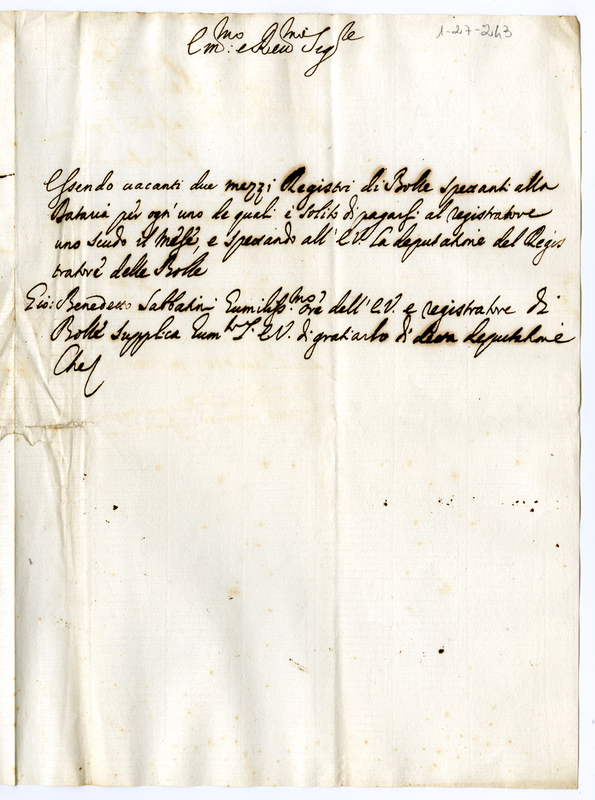 1-27-243
Em:mo e Reu:mo Sig:re
Essendo uacanti due mezzi Registri di Bolle spettanti alla
Dataria per ogn'uno de quali è solito di pagarsi al registratore
uno scudo il mese, e spettando all' E.V. la deputatione del Regis
tratore delle Bolle
Gio: Benedetto Sabbatini humiliss:mo ore dell' E.V. e registratore di
Bolle supplica hum:te l' E.V. di gratiarlo di detta deputatione
Che